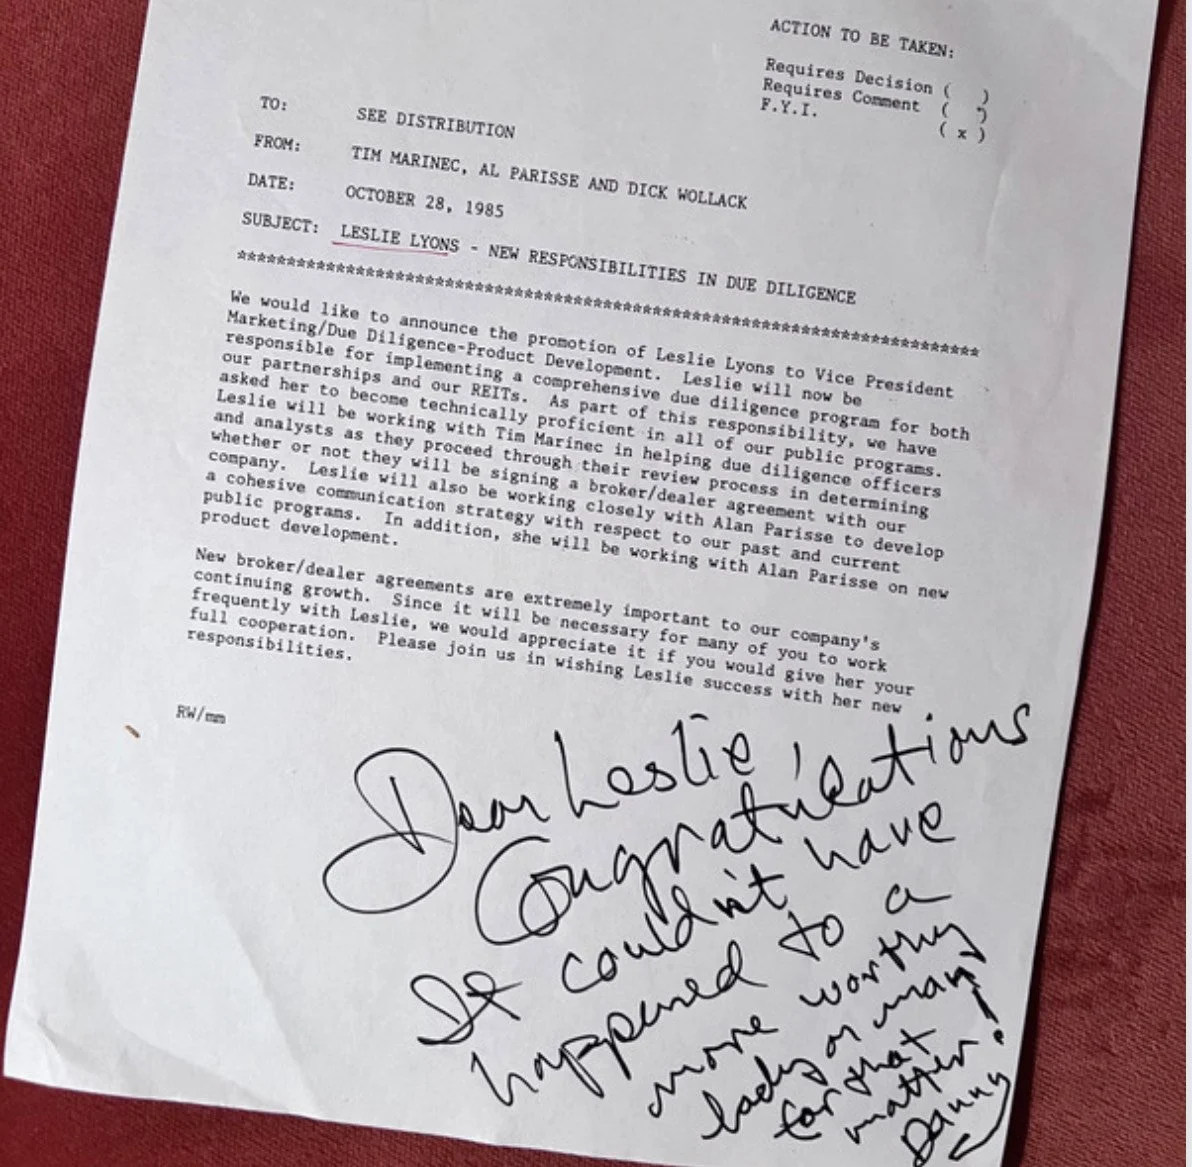 ACTION TO BE TAKEN:
Requires Decision (   )
Requires Comment (   )
F.Y.I. ( x )
TO: SEE DISTRIBUTION
FROM: TIM MARINEC, AL PARISSE AND DICK WOLLACK
DATE: OCTOBER 28, 1985
SUBJECT: LESLIE LYONS - NEW RESPONSIBILITIES IN DUE DILIGENCE
***************************************************************************
We would like to announce the promotion of Leslie Lyons to Vice President
Marketing/Due Diligence-Product Development. Leslie will now be
responsible for implementing a comprehensive due diligence program for both
our partnerships and our REITs. As part of this responsibility, we have
asked her to become technically proficient in all of our public programs.
Leslie will be working with Tim Marinec in helping due diligence officers
and analysts as they proceed through their review process in determining
whether or not they will be signing a broker/dealer agreement with our
company. Leslie will also be working closely with Alan Parisse to develop
a cohesive communication strategy with respect to our past and current
public programs. In addition, she will be working with Alan Parisse on new
product development.
New broker/dealer agreements are extremely important to our company's
continuing growth. Since it will be necessary for many of you to work
frequently with Leslie, we would appreciate it if you would give her your
full cooperation. Please join us in wishing Leslie success with her new
responsibilities.
RW/mm
Dear Leslie,
Congratulations
It couldn't have
happened to a
more worthy
lady or man
for that
matter!
Danny